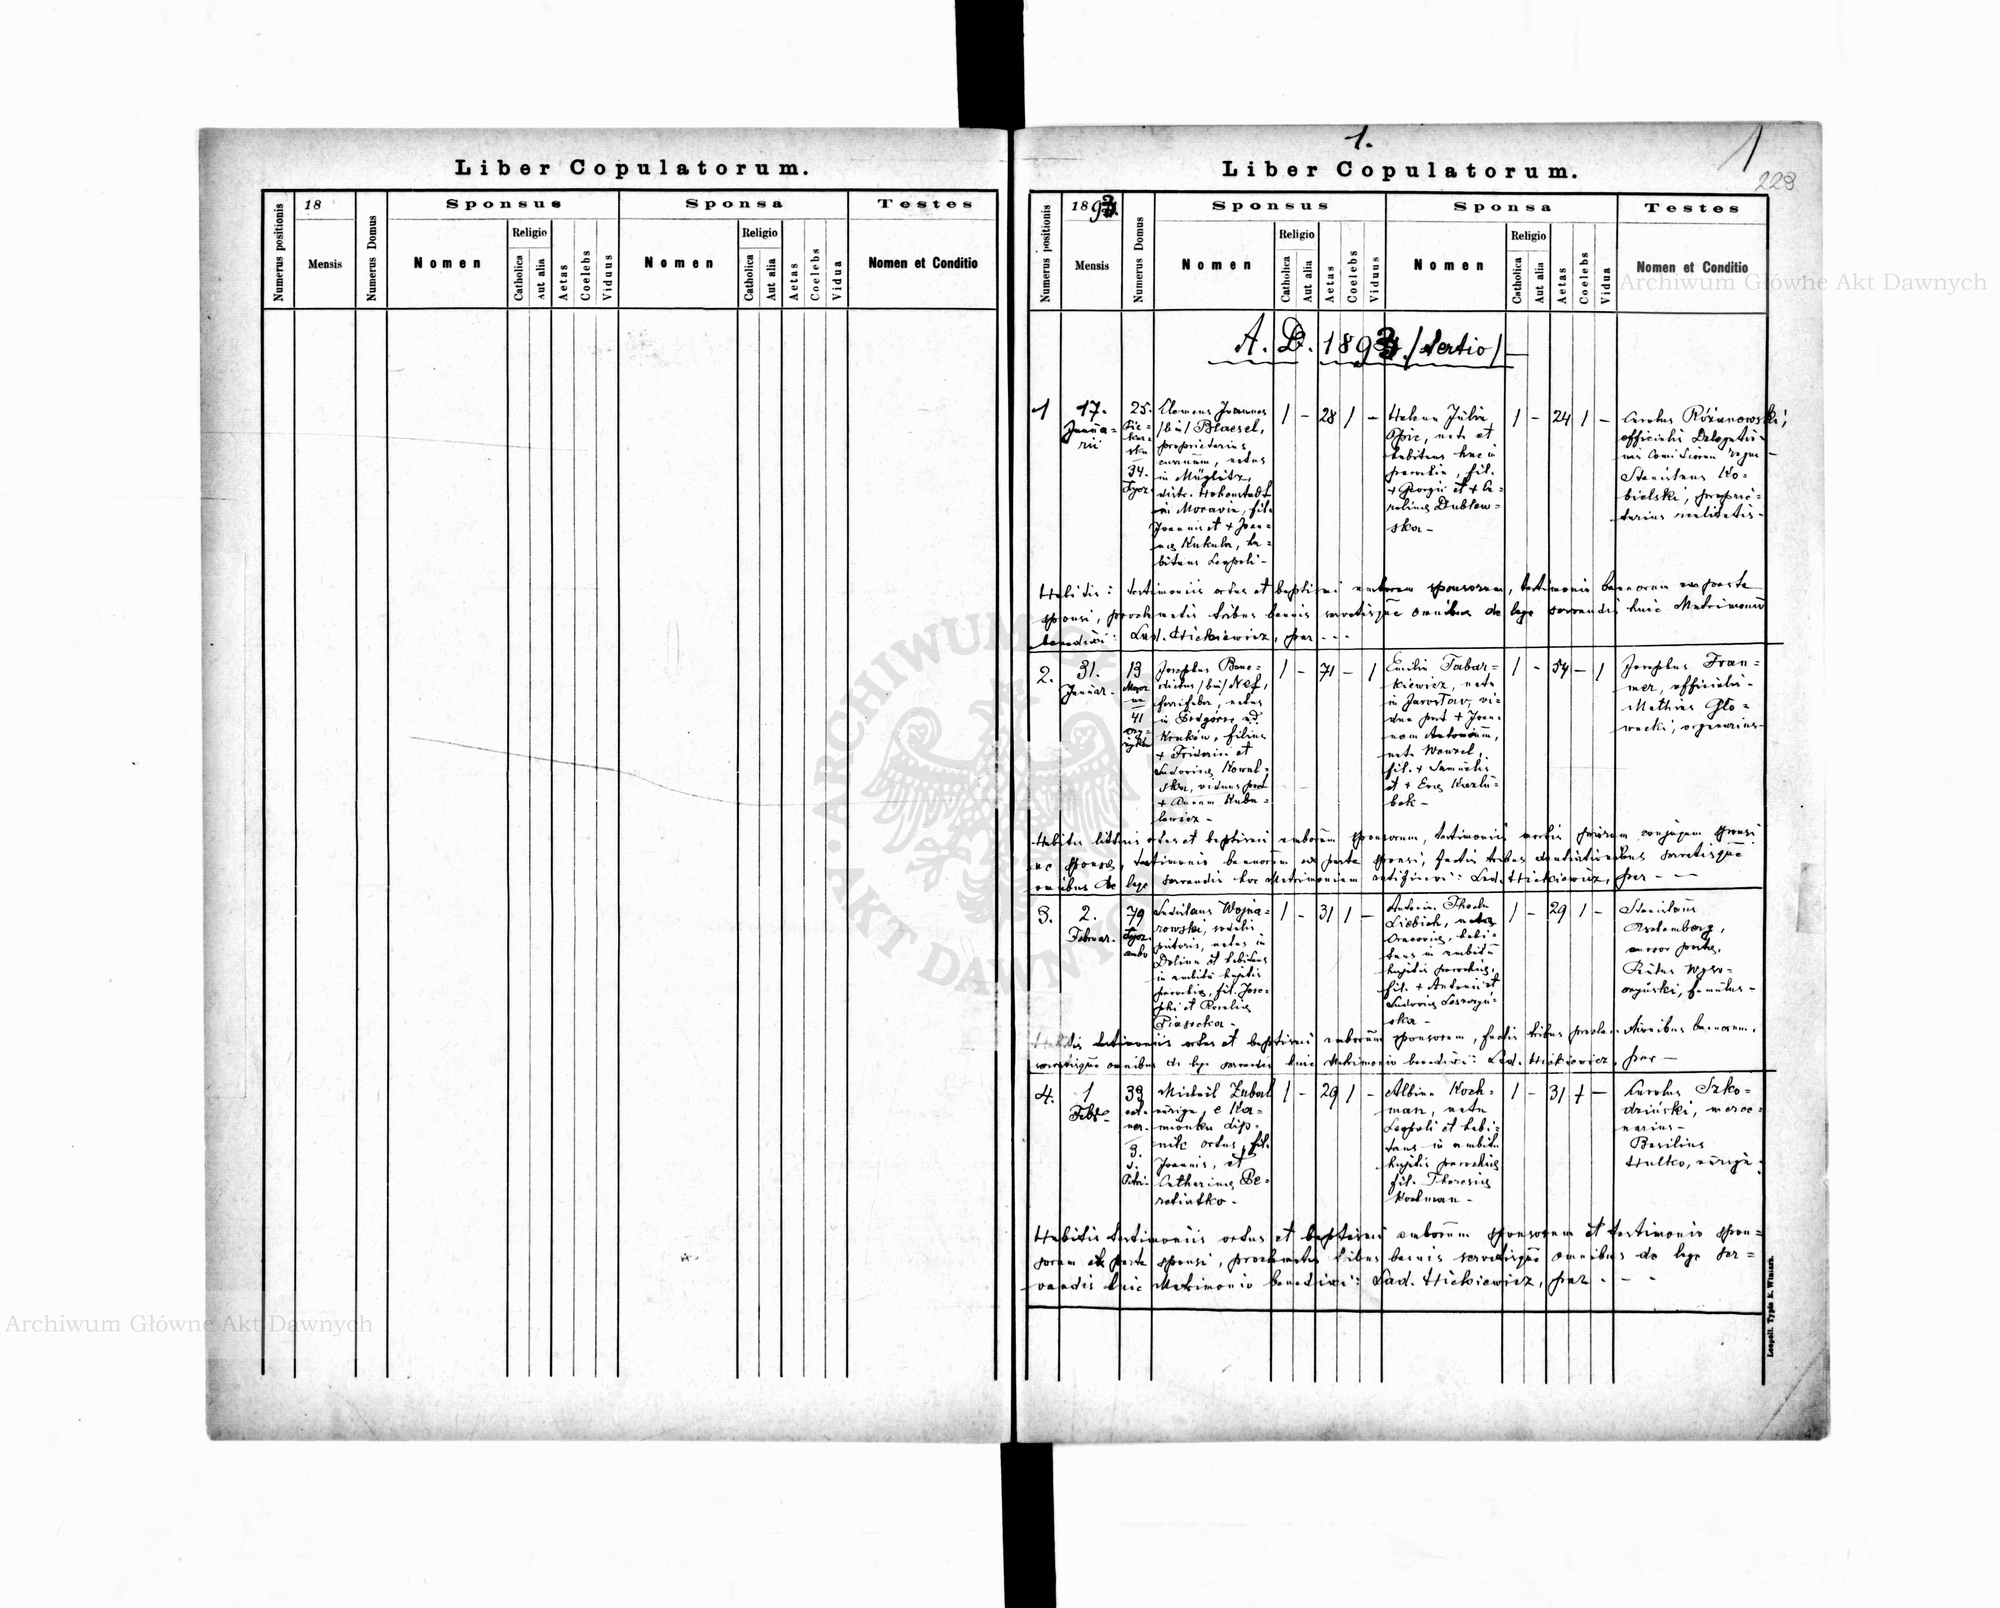 Liber Copulatorum.
Numerus positionis
18
Mensis
Numerus Domus
Sponsus
Nomen
Religio
Catholica
Aut alia
Aetas
Coelebs
Viduus
Sponsa
Nomen
Religio
Catholica
Aut alia
Aetas
Coelebs
Vidua
Testes
Nomen et Conditio
1.
1
Liber Copulatorum.
223
Numerus positionis
1893
Mensis
Numerus Domus
Sponsus
Nomen
Religio
Catholica
Aut alia
Aetas
Coelebs
Viduus
Sponsa
Nomen
Religio
Catholica
Aut alia
Aetas
Coelebs
Vidua
Testes
Nomen et Conditio
A. D. 1893 /tertio/
1
17.
Janua=
rii
25.
34.
Clemens Joannes
/bin/ Blaesel,
proprietarius
natus
in Müglitz,
distr. Hohenstadt
in Moravia, fil.
Joannis et + Joan=
nae Kukula, ha=
bitans Leopoli -
1 - 28 1 -
Helena Julia
Opic, nata et
habitans hac in
parochia, fil.
+ Georgii et + Ca=
rolinae Dublew=
ska -
1 - 24 1 -
Carolus Różanowski,
officialis Delegatio=
nis
Stanislaus Ko=
bielski, proprie=
tarius realitatis -
Habitis: testimoniis ortus et baptismi amborum sponsorum, testimonio bannorum ex parte
sponsi, proclamatis tribus bannis servatisque omnibus de lege servandis huic Matrimonio
benedixi: Lad. Hickiewicz, par - - -
2.
31.
Januar.
13
41
Josephus Bene=
dictus /bin/ Nef,
natus
in Podgórze ad
Kraków, filius
+ Friderici et
Ludovicae Kowal=
ska, viduus post
+ Annam Kuba=
lewicz -
1 - 71 - 1
Emilia Tabar=
kiewicz, nata
in Jarosław, vi=
dua post + Joan=
nem
nata Wenzel,
fil. + Samuelis
et + Evae Kurzlu=
bek -
1 - 54 - 1
Josephus Fran=
mer, officialis -
Mathias Gło=
wacki, organarius -
Habitis litteris ortus et baptismi amborum sponsorum, testimoniis mortis priorum conjugum sponsi
ac sponsae, testimonio bannorum ex parte sponsi, factis tribus denuntiationibus servatisque
omnibus de lege servandis hoc Matrimonium ratificavi: Lad. Hickiewicz, par - -
3.
2.
Februar.
79
Ladislaus Wojna=
rowski,
natus in
Dolina et habitans
in ambitu hujatis
parochiae, fil. Jose=
phi et Rosaliae
Piasecka -
1 - 31 1 -
Antonina Thecla
Liebich, nata
Cracoviae, habi=
tans in ambitu
hujatis parochiae,
fil. + Antonii et
Ludovicae
ska -
1 - 29 1 -
Stanislaus
cursor
Wyso=
czański, famulus -
Habitis testimoniis ortus et baptismi amborum sponsorum, factis tribus bannorum,
servatisque omnibus de lege servandis huic Matrimonio benedixi: Lad. Hickiewicz, par -
4.
1
Febr.
39
3.
s.
Petri.
Michaël Zubal
auriga, e Ka=
mionka Lip=
nik ortus, fil.
Joannis, et
Catharinae Be=
1 - 29 1 -
Albina Koch=
man, nata
Leopoli et habi=
tans in ambitu
hujatis parochiae
fil. Theresiae
Kochman -
1 - 31 1 -
Carolus Szko=
dziński, merce=
narius -
Basilius
Hułko, auriga.
Habitis testimoniis ortus et baptismi amborum sponsorum et testimonio spon=
sorum ex parte sponsi, proclamatis tribus bannis servatisque omnibus de lege ser=
vandis huic Matrimonio benedixi: Lad. Hickiewicz, par - - -
Leopoli. Typis E. Winiarz.
Archiwum Główne Akt Dawnych
Archiwum Główne Akt Dawnych